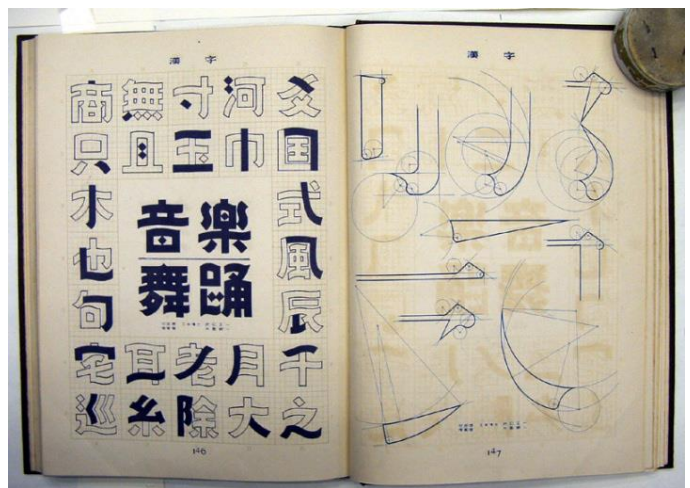 漢 字
商 無 寸 河
只 且 玉 巾 国
木 式
音楽
也 風
舞踊
句 辰
宅 耳 老 月 千
巡 糸 除 大 之
146
漢 字
147